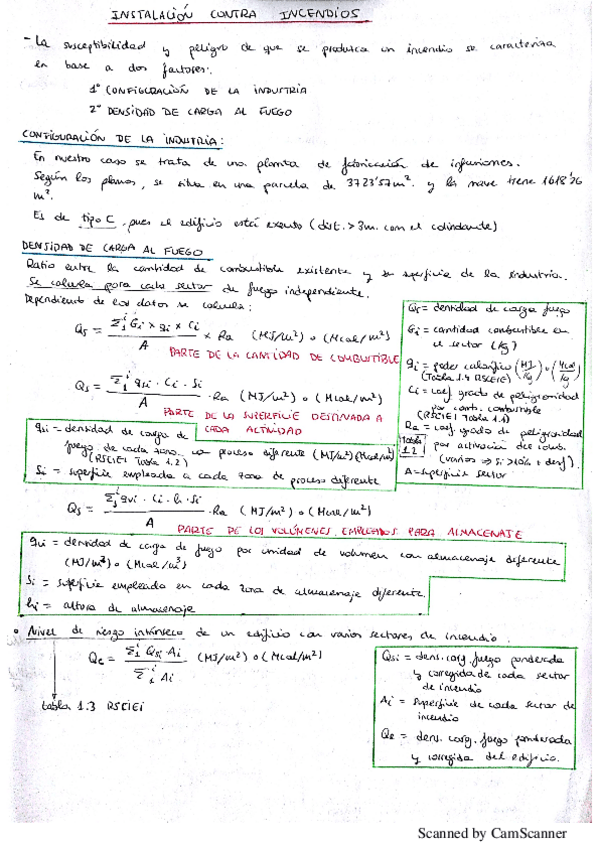 INSTALACIÓN CONTRA INCENDIOS
- La susceptibilidad y peligro de que se produzca un incendio se caracteriza
en base a dos factores:
1º CONFIGURACIÓN DE LA INDUSTRIA
2º DENSIDAD DE CARGA AL FUEGO
CONFIGURACIÓN DE LA INDUSTRIA:
En nuestro caso se trata de una planta de fabricación de infusiones.
Según los planos, se situa en una parcela de 3723'57m². y la nave tiene 1618'26
m².
Es de tipo C, pues el edificio está exento (dist. > 3m. con el colindante)
DENSIDAD DE CARGA AL FUEGO
Ratio entre la cantidad de combustible existente y su superficie de la industria.
Se calcula para cada sector de fuego independiente.
Dependiendo de los datos se calcula:
Qs = Σ₁ⁱ Gi × qi × Ci / A × Ra (MJ/m²) o (Mcal/m²)
PARTE DE LA CANTIDAD DE COMBUSTIBLE
Qs = Σ₁ⁱ qsi · Ci · Si / A · Ra (MJ/m²) o (Mcal/m²)
PARTE DE LA SUPERFICIE DESTINADA A
CADA ACTIVIDAD
Qs = densidad de carga fuego
Gi = cantidad combustible en
el sector (Kg)
qi = poder calorífico (MJ/Kg) o (Mcal/Kg)
(Tabla 1.4 RSCIEI)
Ci = coef. grado de peligrosidad
por cont. combustible
(RSCIEI Tabla 1.1)
Ra = coef. grado de peligrosidad
Tabla 1.2
por activación de
(varios ⇒ Si >10% + desf).
A = Superficie sector
qsi = densidad de carga de
fuego de cada zona con proceso diferente (MJ/m²)(Mcal/m²)
(RSCIEI Tabla 1.2)
Si = superficie empleada a cada zona de proceso diferente
Qs = Σ₁ⁱ qvi · Ci · h · Si / A · Ra (MJ/m²) o (Mcal/m²)
PARTE DE LOS VOLÚMENES EMPLEADOS PARA ALMACENAJE
qvi = densidad de carga de fuego por unidad de volumen con almacenaje diferente
(MJ/m³) o (Mcal/m³)
Si = superficie empleada en cada zona de almacenaje diferente.
hi = altura de almacenaje
º Nivel de riesgo intrínseco de un edificio con varios sectores de incendio.
Qe = Σ₁ⁱ Qsi · Ai / Σ₁ⁱ Ai (MJ/m²) o (Mcal/m²)
tabla 1.3 RSCIEI
Qsi = dens. carg. fuego ponderada
y corregida de cada sector
de incendio
Ai = superficie de cada sector de
incendio
Qe = dens. carg. fuego ponderada
y corregida del edificio.
Scanned by CamScanner